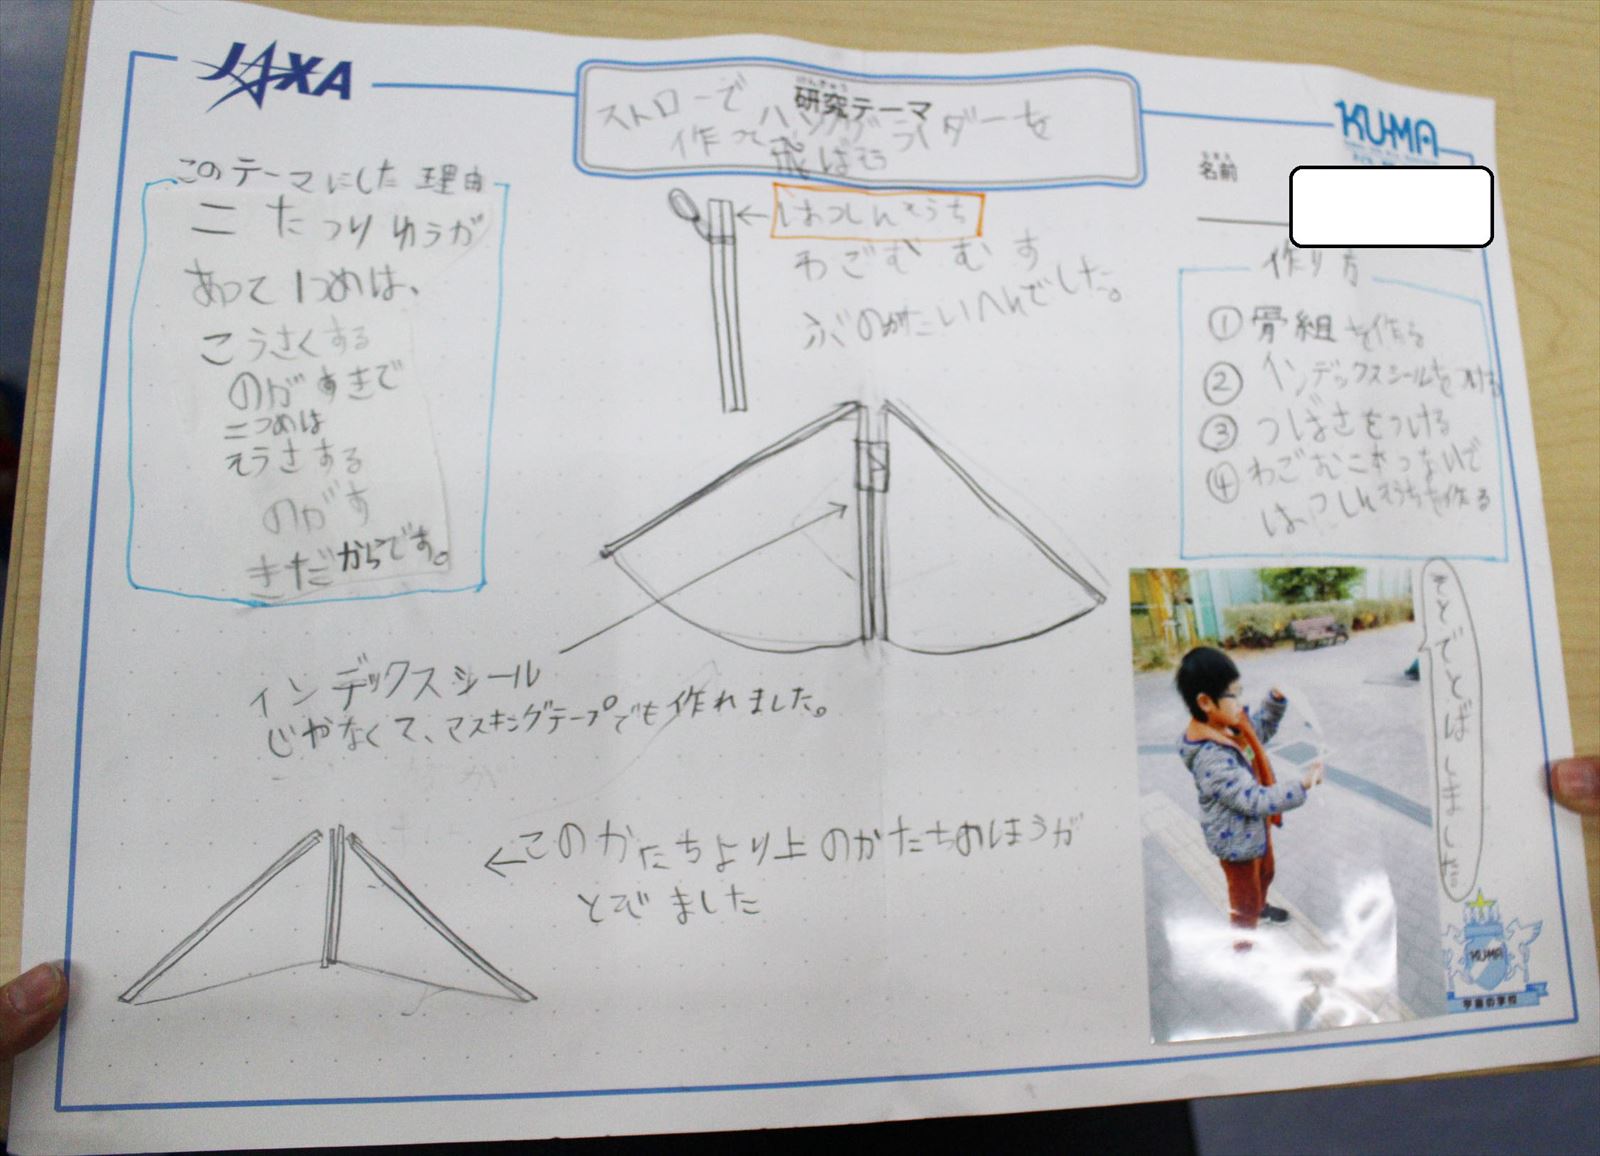 JAXA
けんきゅう
研究テーマ
ストローで
作ってハンググライダーを
飛ばそう
KU-MA
なまえ
名前
このテーマにした理由
二たつりゆうが
あって1つめは、
こうさくする
のがすきで
二つめは
そうさする
のがす
きだからです。
はっしんそうち
わごむむす
ぶのがたいへんでした。
作り方
①骨組を作る
②インデックスシールをつける
③つばさをつける
④わごむ二本つないで
はっしんそうちを作る
インデックスシール
じゃなくて、マスキングテープでも作れました。
このかたちより上のかたちのほうが
とびました
そとでとばしました
KUMA
宇宙の学校